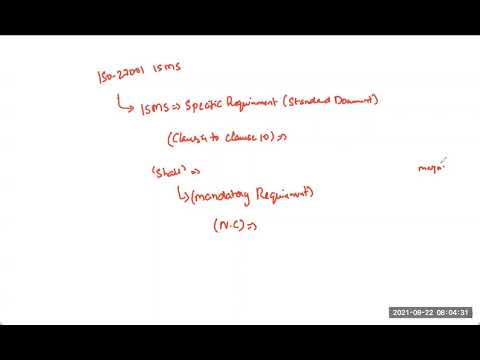 ISO-27001 ISMS
ISMS => Specific Requirement (Standard Document)
(Clause 4 to clause 10) =>
'Shall' =>
(mandatory Requirement)
(N.C) =>
2021-09-22 08:04:31